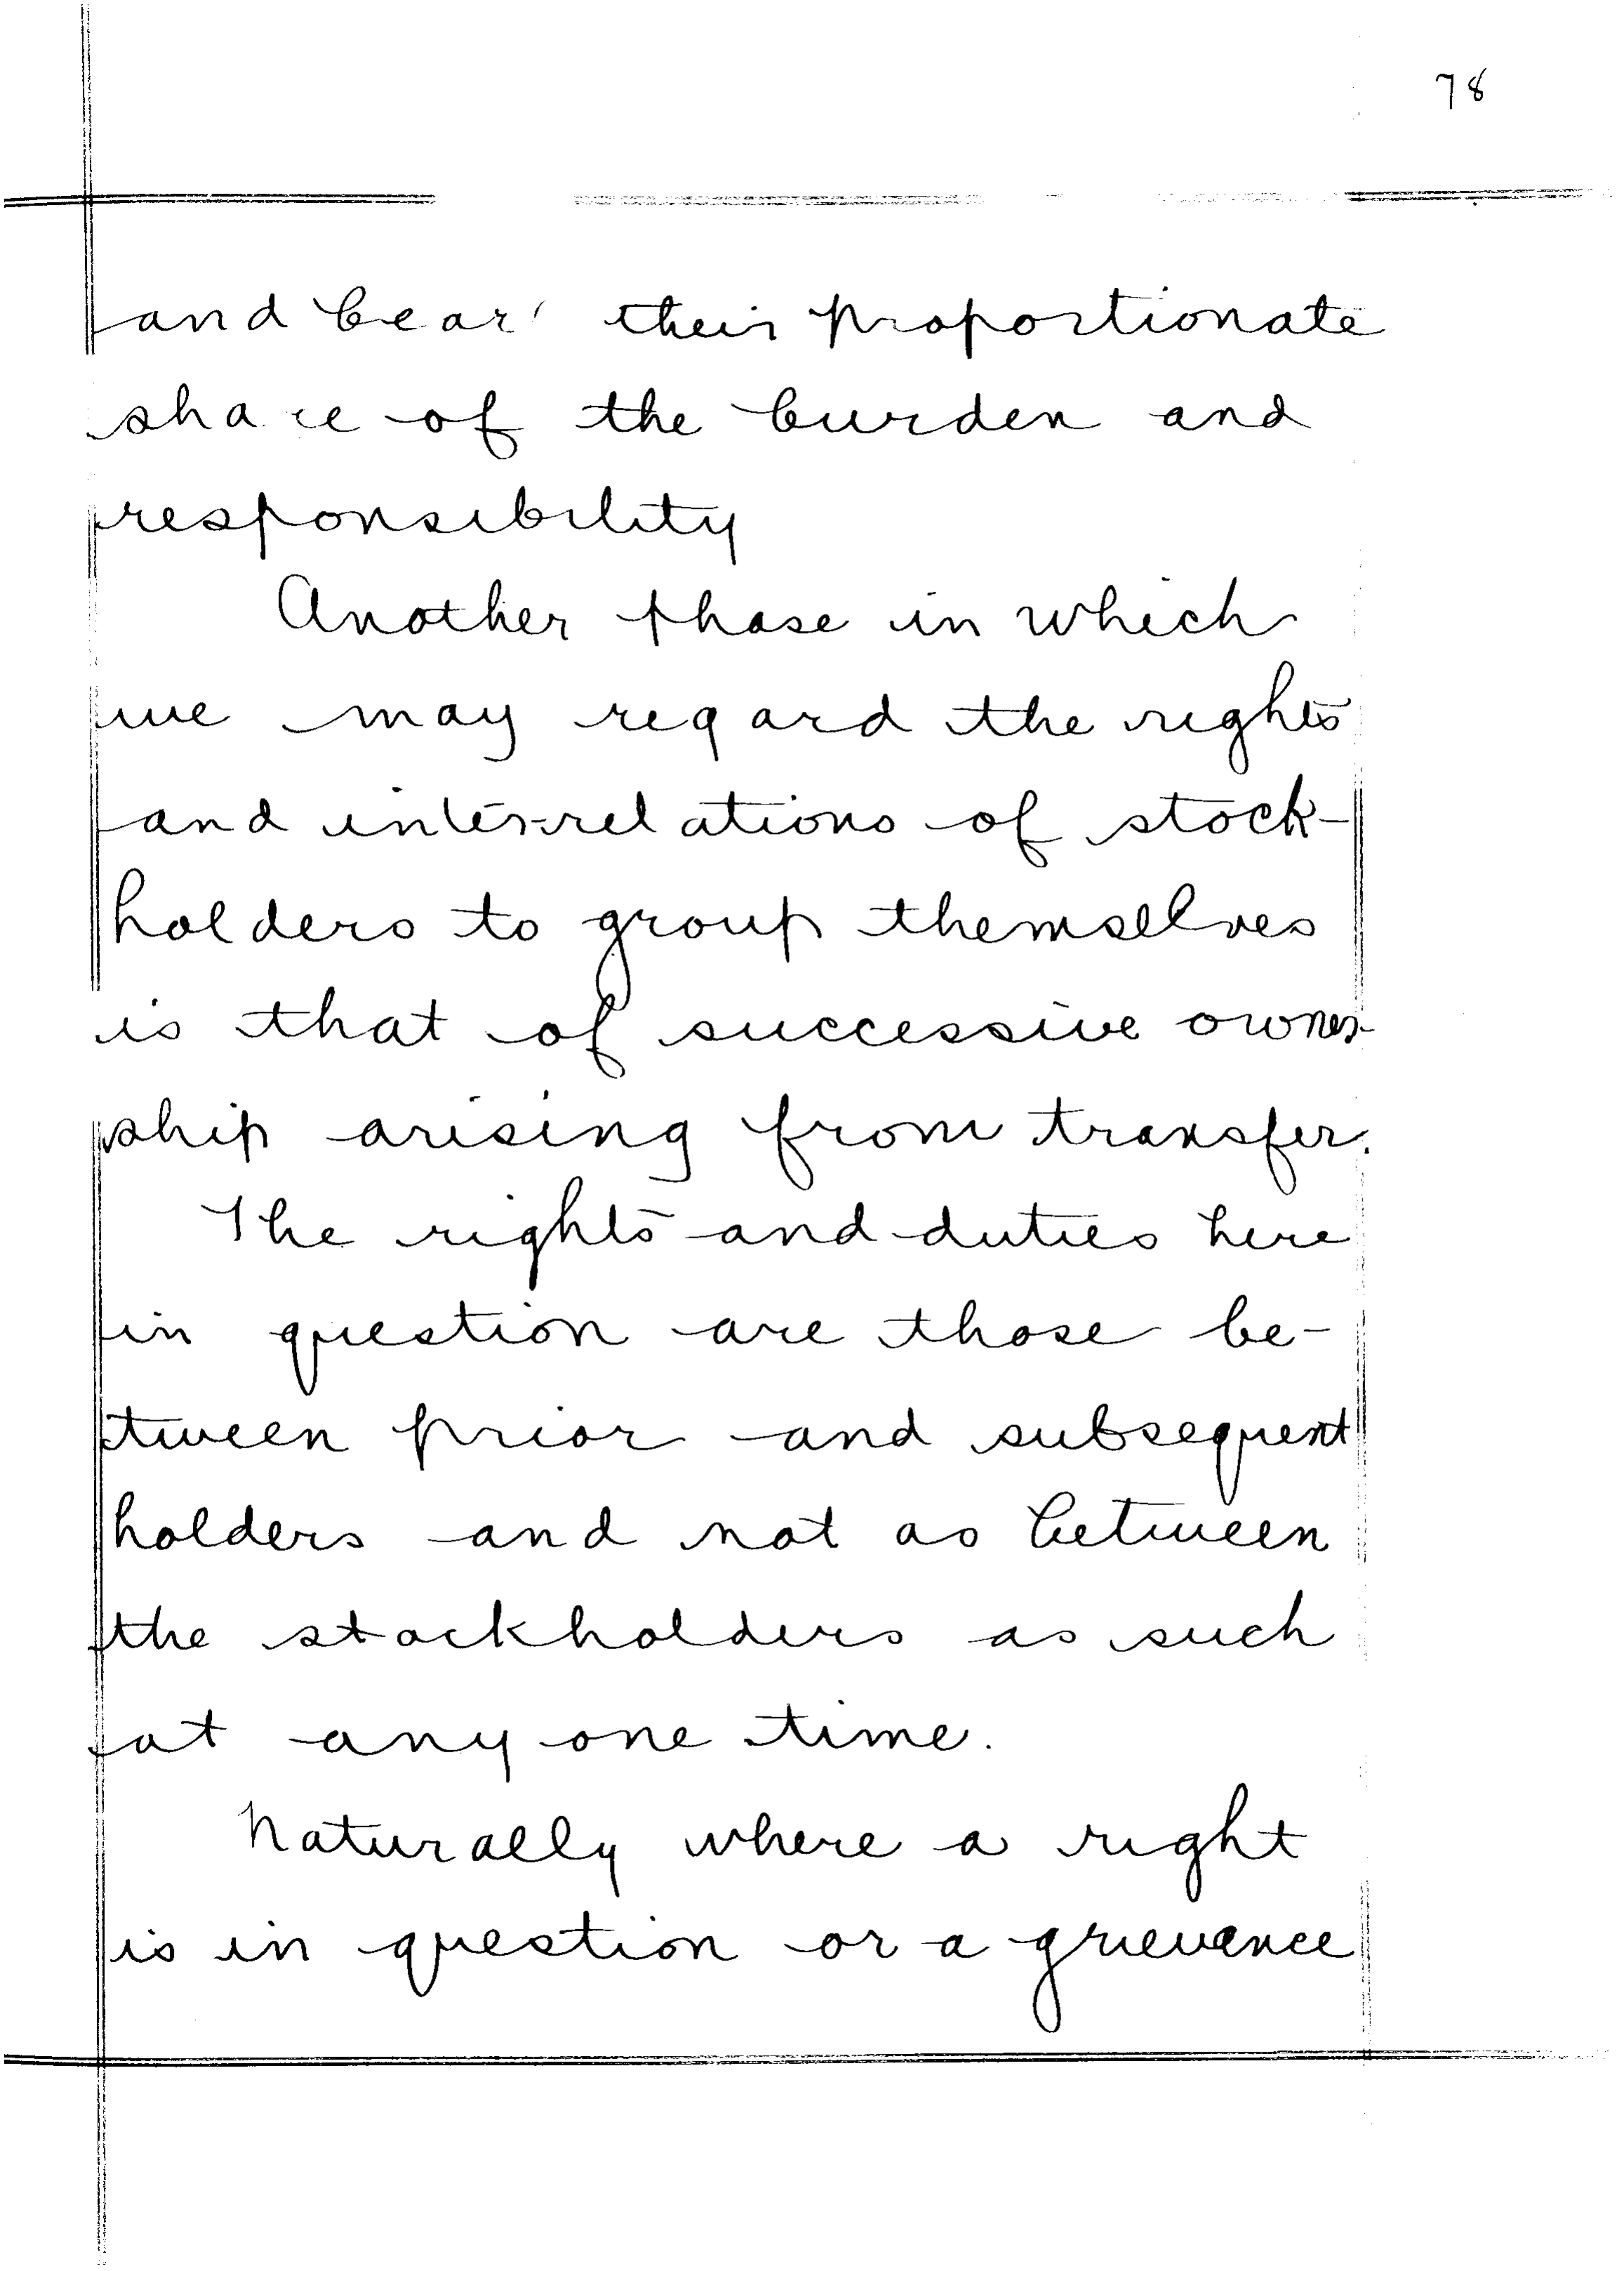 78
and bear their proportionate
share of the burden and
responsibility
Another phase in which
we may regard the rights
and inter-relations of stock-
holders to group themselves
is that of successive owner-
ship arising from transfer.
The rights and duties here
in question are those be-
tween prior and subsequent
holders and not as between
the stockholders as such
at any one time.
Naturally where a right
is in question or a grievance